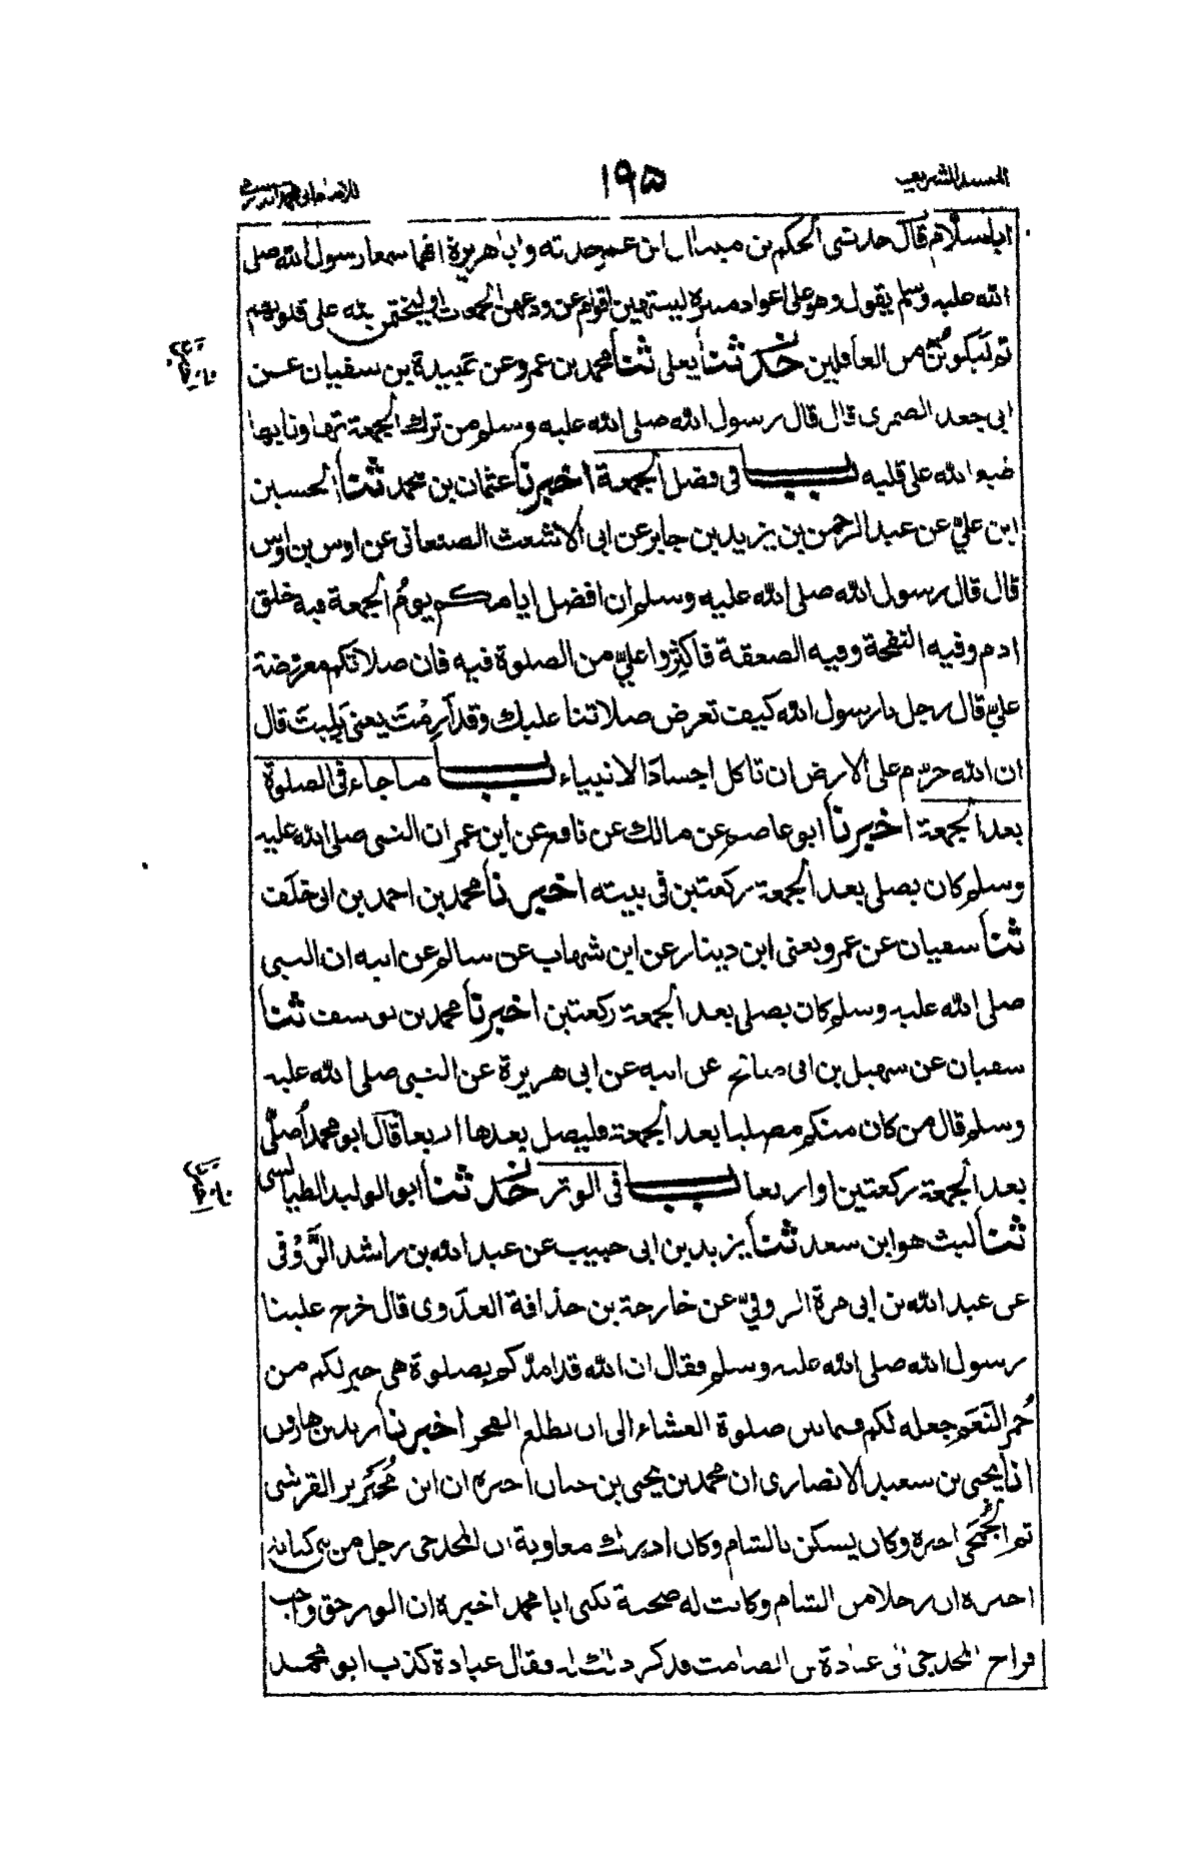 المسند الشريف
١٩٥
اباسلام قال حدثني الحكم بن ميناء ان ابن عمر حدثه وابا هريرة انهما سمعا رسول الله صلى
الله عليه وسلم يقول وهو على اعواد منبره لينتهين اقوام عن ودعهن الجمعات او ليختمن الله على قلوبهم
ثم ليكونن من الغافلين حدثنا يعلى ثنا محمد بن عمرو عن عبيدة بن سفيان عن
ابي جعد الضمرى قال قال رسول الله صلى الله عليه وسلم من ترك الجمعة تهاونا بها
طبع الله على قلبه باب في فضل الجمعة اخبرنا عثمان بن محمد ثنا الحسين
ابن علي عن عبد الرحمن بن يزيد بن جابر عن ابي الاشعث الصنعانى عن اوس بن اوس
قال قال رسول الله صلى الله عليه وسلم ان افضل ايامكم يوم الجمعة فيه خلق
ادم وفيه النفخة وفيه الصعقة فاكثروا علىّ من الصلوة فيه فان صلاتكم معروضة
علىّ قال رجل يا رسول الله كيف تعرض صلاتنا عليك وقد اَرِمْتَ يعنى بَلِيتَ قال
ان الله حرّم على الارض ان تاكل اجساد الانبياء باب ما جاء فى الصلوة
بعد الجمعة اخبرنا ابو عاصم عن مالك عن نافع عن ابن عمر ان النبى صلى الله عليه
وسلم كان يصلى بعد الجمعة ركعتين فى بيته اخبرنا محمد بن احمد بن ابى خلف
ثنا سفيان عن عمرو يعنى ابن دينار عن ابن شهاب عن سالم عن ابيه ان النبى
صلى الله عليه وسلم كان يصلى بعد الجمعة ركعتين اخبرنا محمد بن يوسف ثنا
سفيان عن سهيل بن ابى صالح عن ابيه عن ابى هريرة عن النبى صلى الله عليه
وسلم قال من كان منكم مصليا بعد الجمعة فليصل بعدها اربعا قال ابو محمد اُصلّى
بعد الجمعة ركعتين او اربعا باب فى الوتر حدثنا ابو الوليد الطيالسى
ثنا ليث هو ابن سعد ثنا يزيد بن ابى حبيب عن عبد الله بن راشد الزَّوْفى
عن عبد الله بن ابى مرة الزوفىّ عن خارجة بن حذافة العدوى قال خرج علينا
رسول الله صلى الله عليه وسلم فقال ان الله قد امدّكم بصلوة هى خير لكم من
حُمر النَعَم جعله لكم فيما بين صلوة العشاء الى ان يطلع الفجر اخبرنا يزيد بن هارون
انا يحيى بن سعيد الانصارى ان محمد بن يحيى بن حبان اخبره ان ابن مُحَيْريز القرشى
ثم الجُمَحى اخبره وكان يسكن بالشام وكان ادرك معاوية ان المخدجى رجل من بنى كنانة
اخبره ان رجلا من الشام وكانت له صحبة يكنى ابا محمد اخبره ان الوتر حق واجب
فراح المخدجى الى عبادة بن الصامت فذكر ذلك له فقال عبادة كذب ابو محمد